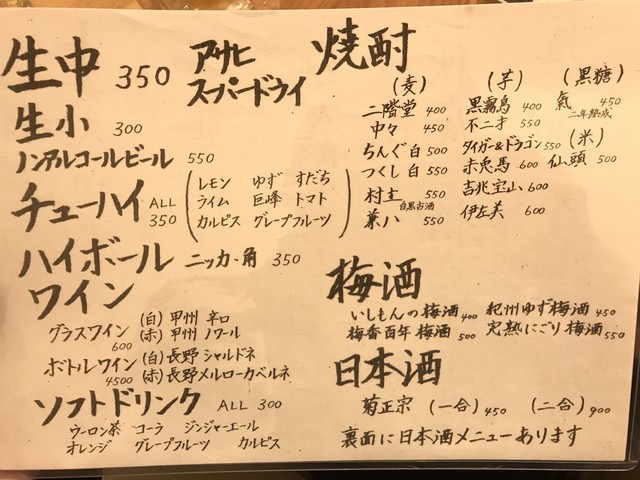 生中 350 アサヒ
スーパードライ
生小 300
ノンアルコールビール 550
チューハイ ALL 350
レモン ゆず すだち
ライム 巨峰 トマト
カルピス グレープフルーツ
ハイボール ニッカ・角 350
ワイン
グラスワイン 600
(白) 甲州 辛口
(赤) 甲州 ノワール
ボトルワイン 4500
(白) 長野 シャルドネ
(赤) 長野 メルローカベルネ
ソフトドリンク ALL 300
ウーロン茶 コーラ ジンジャーエール
オレンジ グレープフルーツ カルピス
焼酎
(麦)
二階堂 400
中々 450
ちんぐ白 500
つくし白 550
村主 550
白黒古酒
兼八 550
(芋)
黒霧島 400
不二才 550
タイガー&ドラゴン 550
赤兎馬 600
吉兆宝山 600
伊左美 600
(黒糖)
氣 450
二年熟成
(米)
仙頭 500
梅酒
いしもんの梅酒 400 紀州ゆず梅酒 450
梅香百年梅酒 500 完熟にごり梅酒 550
日本酒
菊正宗 (一合) 450 (二合) 900
裏面に日本酒メニューあります